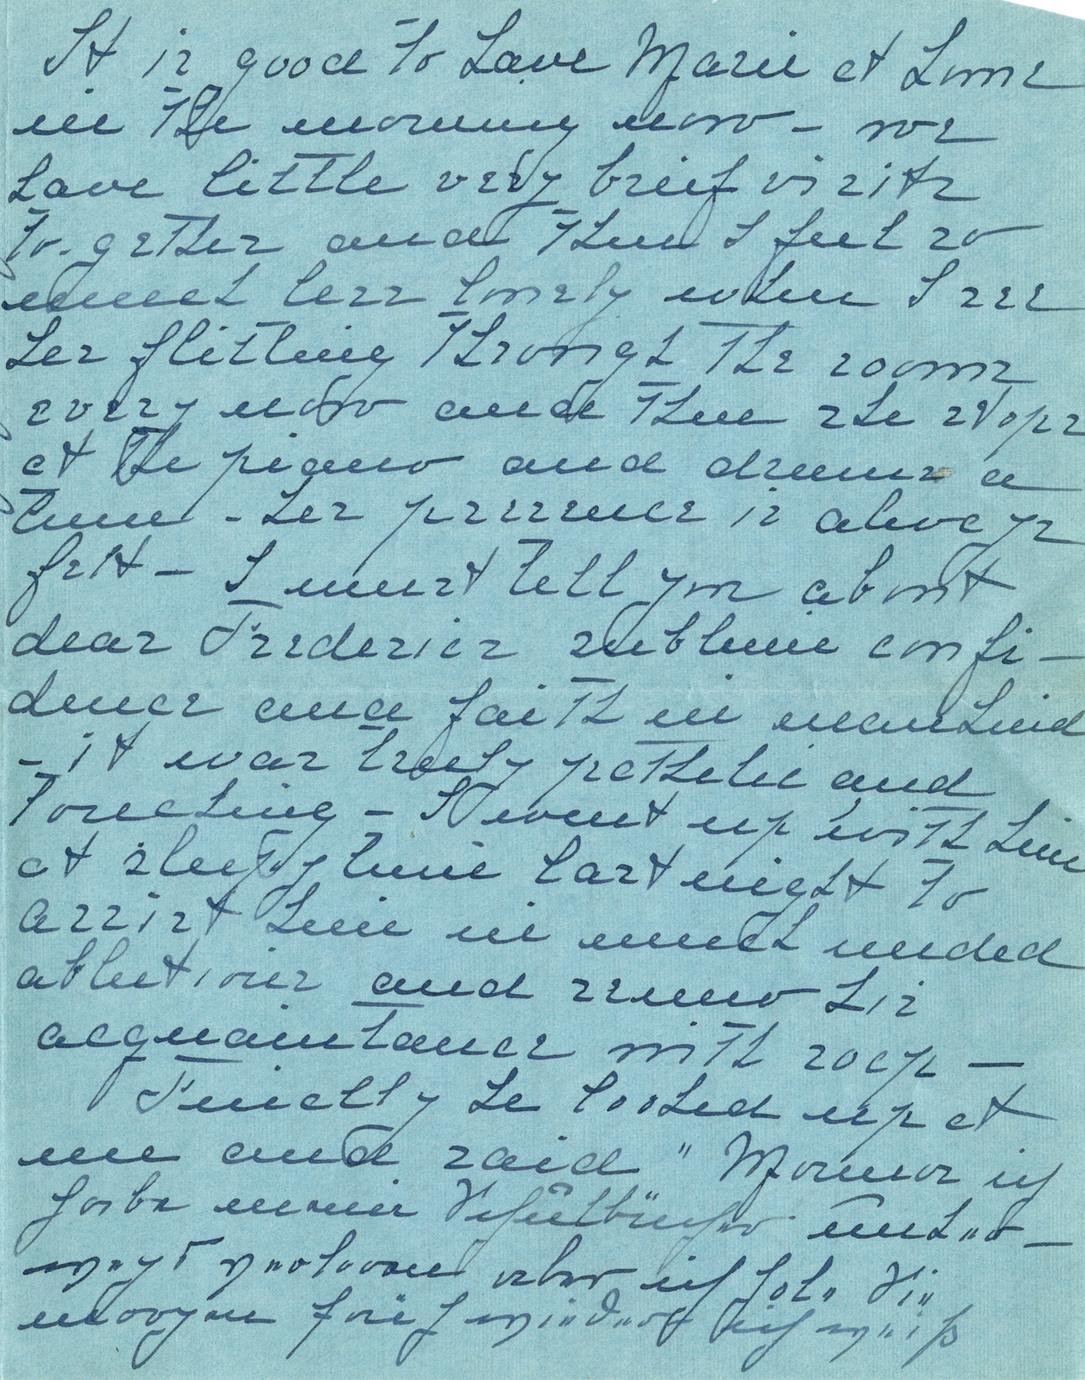 It is good to have Marie at home
in the morning now - we
have little very brief visits
to-gether and then I feel so
much less lonely when I see
her flitting through the rooms
every now and then she stops
at the piano and drums a
tune - her presence is always
felt - I must tell you about
dear Frederics sublime confi-
dence and faith in mankind
- it was truly pathetic and
touching - I went up with him
at sleepy time last night to
assist him in much needed
ablutions and renew his
acquaintance with soap -
Finally he looked up at
me and said "Mormor ich
habe meine Schulbücher unter-
wegs verloren aber ich hole Sie
morgen früh wieder ich weiß